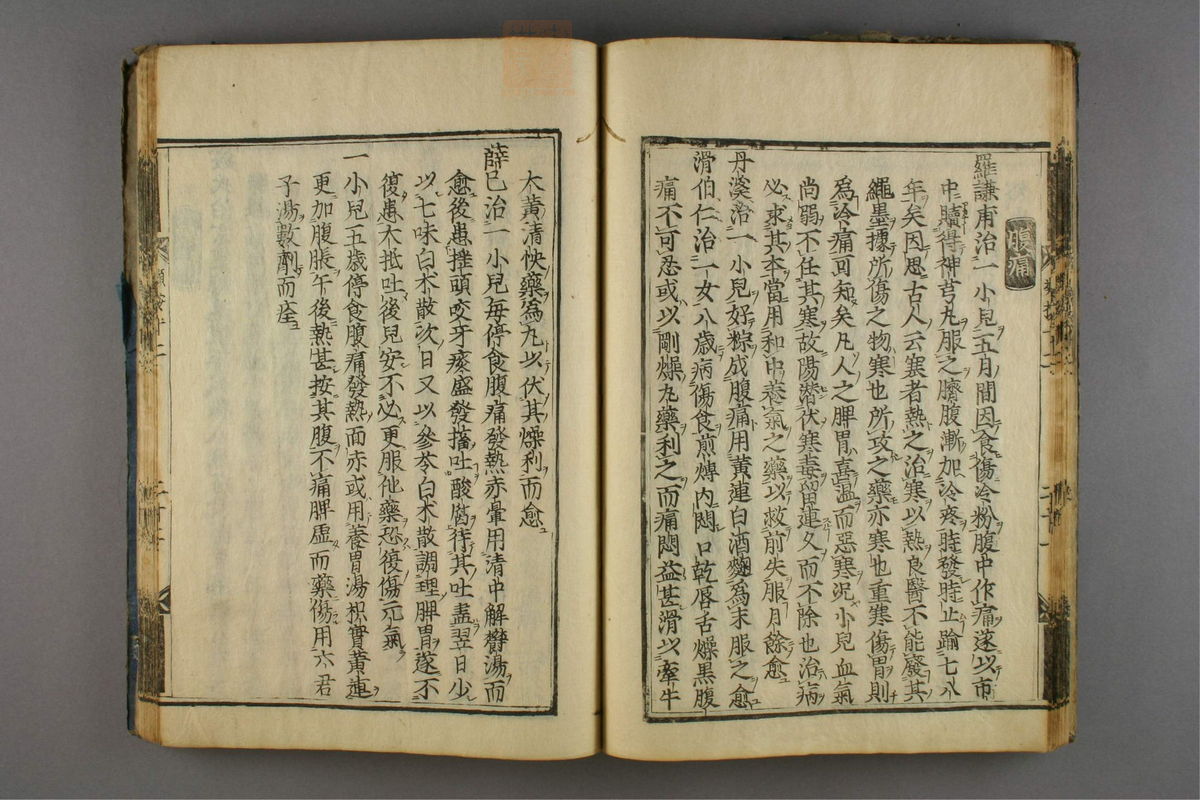 腹痛
羅謙甫治一小兒五月間因食傷冷粉腹中作痛遂以市
中贖得神芎丸服之臍腹漸加冷疼時發時止踰七八
年矣因思古人云寒者熱之治寒以熱良醫不能廢其
繩墨據所傷之物寒也所攻之藥亦寒也重寒傷胃則
爲冷痛可知矣凡人之脾胃喜溫而惡寒況小兒血氣
尚弱不任其寒故陽潛伏寒毒留連久而不除也治病
必求其本當用和中養氣之藥以救前失服月餘愈
丹溪治一小兒好粽成腹痛用黃連白酒麯爲末服之愈
滑伯仁治一女八歲病傷食煎煿内悶口乾唇舌燥黑腹
痛不可忍或以剛燥丸藥利之而痛悶益甚滑以牽牛
大黃清快藥爲丸以伏其燥利而愈
薛己治一小兒毎停食腹痛發熱赤暈用清中解欝湯而
愈後患摇頭咬牙痰盛發搐吐酸腐待其吐盡翌日少
以七味白朮散次日又以參苓白朮散調理脾胃遂不
復患大抵吐後兒安不必更服他藥恐復傷元氣
一小兒五歲停食腹痛發熱面赤或用養胃湯枳實黃連
更加腹脹午後熱甚按其腹不痛脾虛而藥傷用六君
子湯數劑而痊